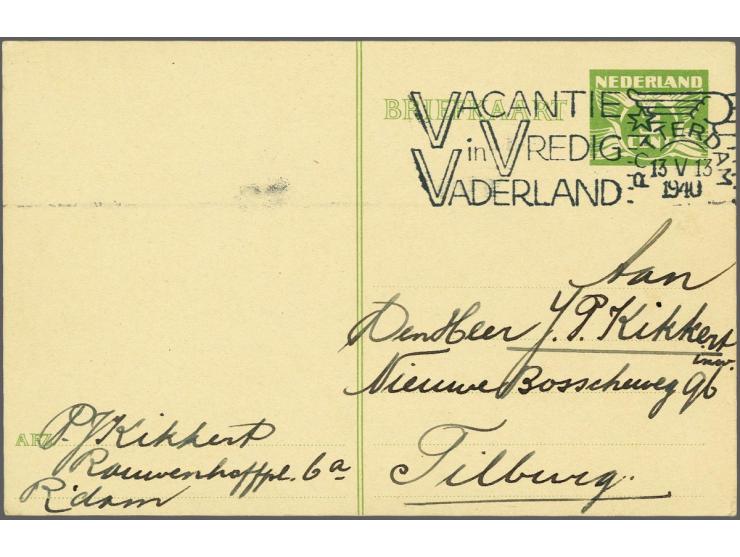 NEDERLAND
BRIEFKAART
VACANTIE
in VREDIG
VADERLAND.
ROTTERDAM
13 V 13
1940
Aan
Den Heer J. P. Kikkert
Nieuwe Bosscheweg 96
Tilburg.
AFZ. P. J. Kikkert
Rauwenhoffpl. 6a
R'dam